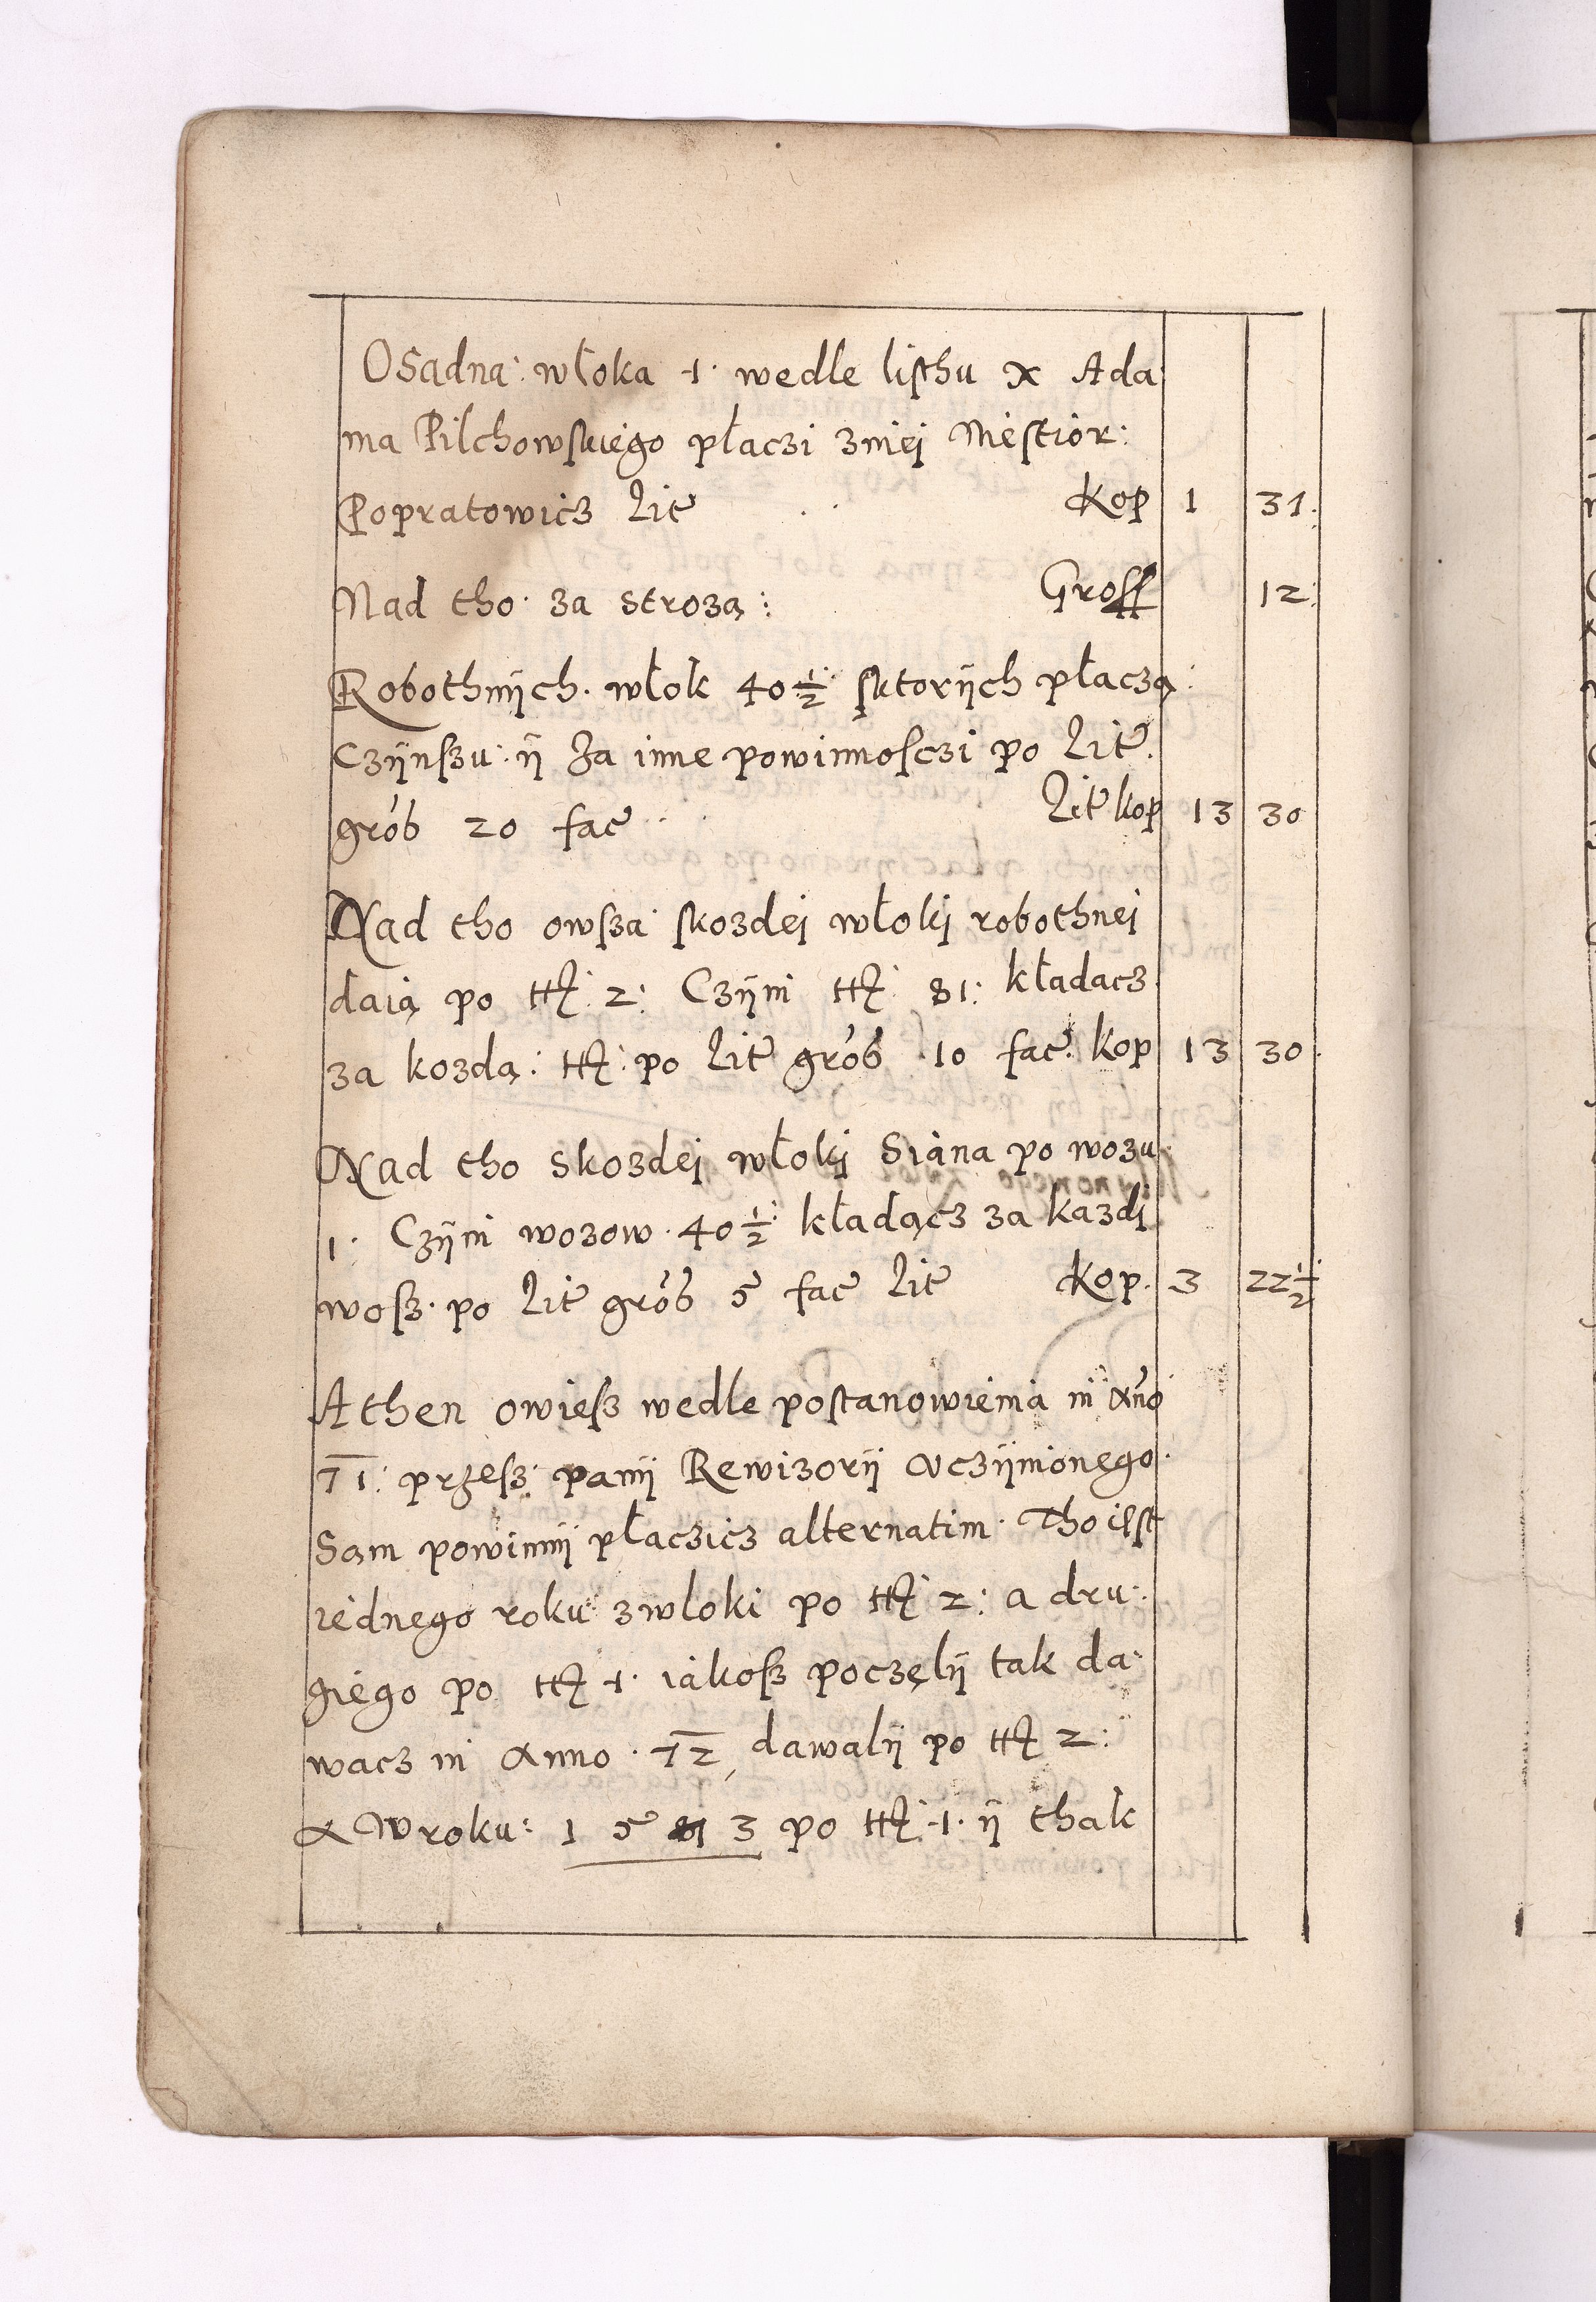 Osadna włoka 1 wedle listhu x Ada
ma Pilchowskiego płaczi zniei Niestior:
Popratowicz Lit Kop 1 31
Nad tho za strozą: Gross 12
Robothnijch włok 40½ sktorijch płaczą
Czijnszu ij Za inne powinnosczi po Lit
grob 20 fac Lit kop 13 30
Nad tho owsza skozdei włoki robothnei
daią po 2: Czijni 81: kładacz
za kozdą: po Lit grob 10 fac kop 13 30
Nad tho skozdei włoki Siana po wozu
1. Czijni wozow 40½ kładącz za kazdi
wosz po Lit grob 5 fac Lit Kop 3 22½
A then owiesz wedle postanowienia in Ano
71: przesz panij Rewizorij uczijnionego
Sam powinnij płaczicz alternatim Tho iest
iednego roku zwloki po 2: a dru
giego po 1 iakosz poczęlij tak da
wacz in Anno 72, dawalij po 2:
A W roku: 1573 po 1 ij thak